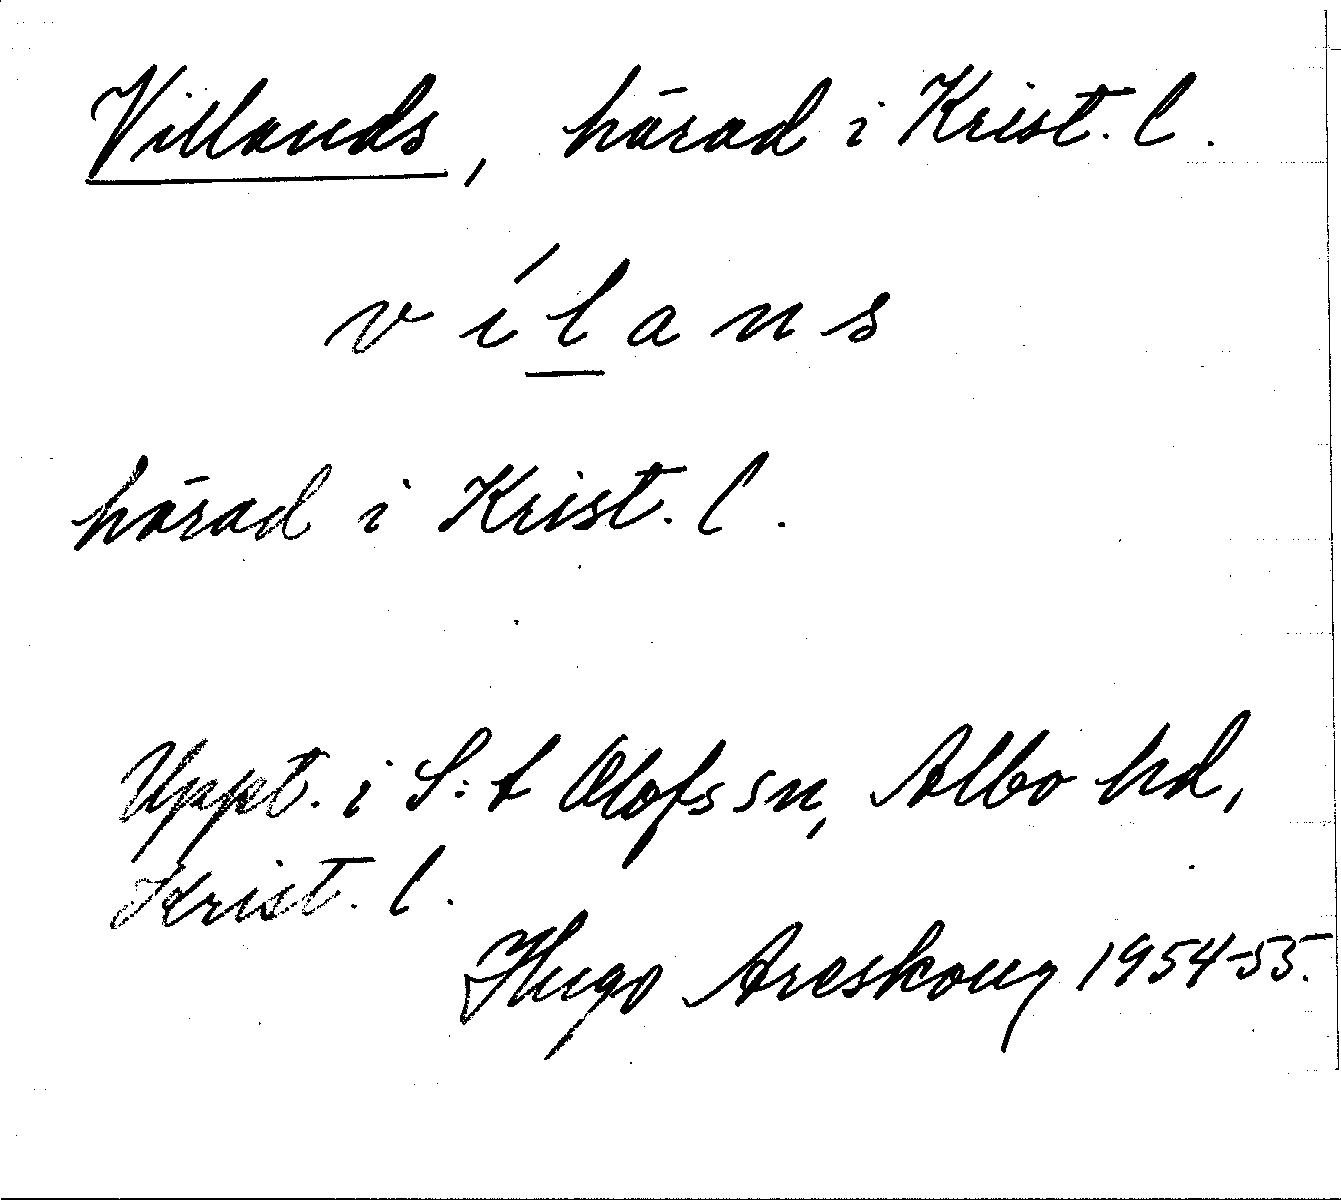 Villands, härad i Krist. l.
vílans
härad i Krist. l.
Uppt. i S:t Olofs sn, Albo hd,
Krist. l.
Hugo Areskoug 1954-55.